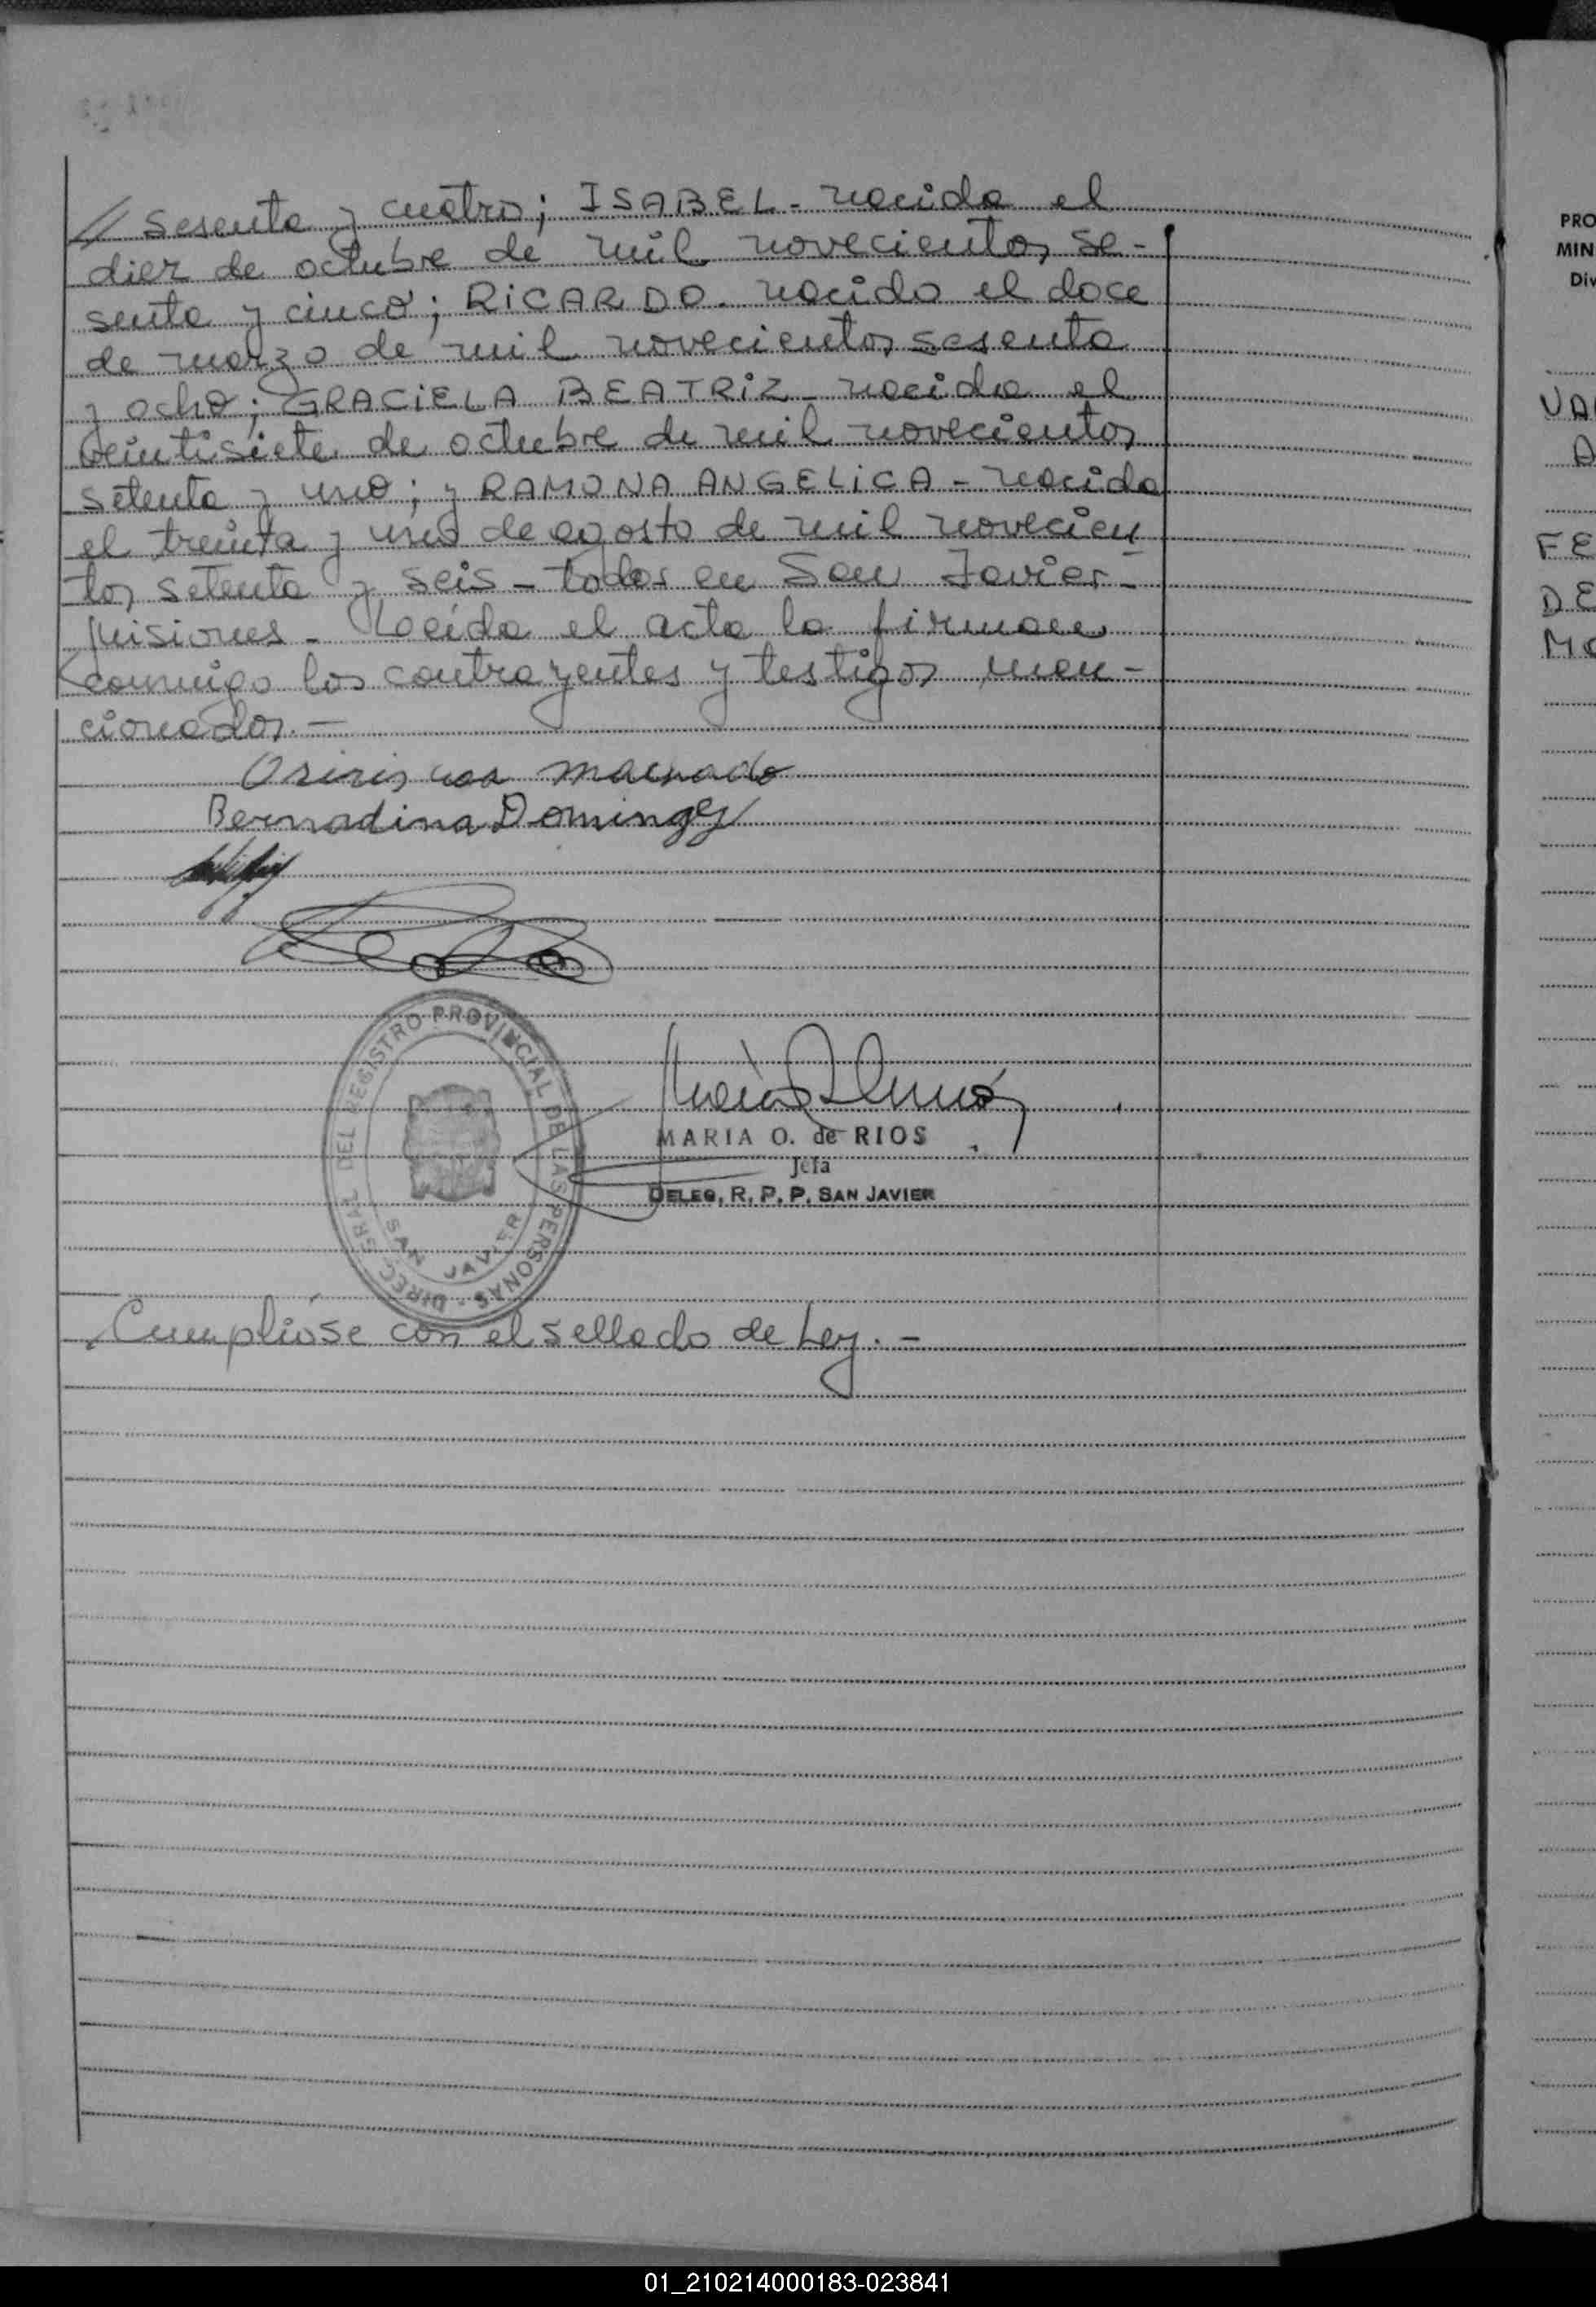 // sesenta y cuatro; ISABEL - nacida el
diez de octubre de mil novecientos se-
senta y cinco; RICARDO - nacido el doce
de marzo de mil novecientos sesenta
y ocho; GRACIELA BEATRIZ - nacida el
veintisiete de octubre de mil novecientos
setenta y uno; y RAMONA ANGELICA - nacida
el treinta y uno de agosto de mil novecien
tos setenta y seis - todos en San Javier -
Misiones - Leída el acta la firman
conmigo los contrayentes y testigos men-
cionados. -
Osiris
Bernadina Dominguez
DIREC. GRAL. DEL REGISTRO PROVINCIAL DE LAS PERSONAS -
SAN JAVIER
MARIA O. de RIOS
Jefa
DELEG. R. P. P. SAN JAVIER
Cumplióse con el sellado de Ley. -
PRO
MIN
Div
VA
A
FE
DE
MO
01_210214000183-023841